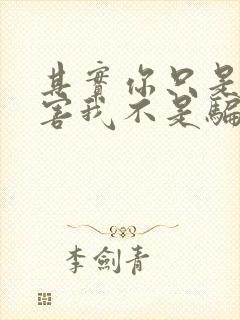 其實你只是
害我不是騙
李劍青